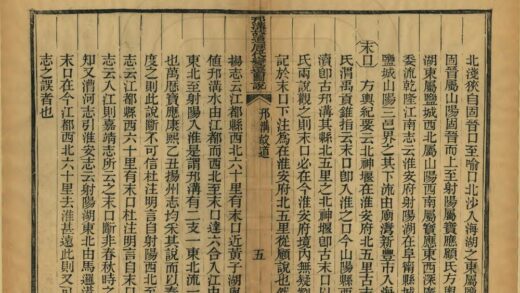 北淺狹自固晉口至喻口北沙入海湖之東屬鹽
固晉屬山陽固晉而上至射陽屬寶應顧氏方輿
湖東屬鹽城西北屬山陽西南屬寶應東西深
委流乾隆江南志云射陽湖在阜寧縣城
鹽城山陽三邑界之其下流由廟灣新豐市入海
末口 方輿紀要云北神堰在淮安府北五里古
氏渭禹貢錐指云末口卽入淮之口今山陽縣
瀆卽古邗溝其縣北五里之北神堰卽古末口以
氏兩說觀之則末口必在今淮安府境內無疑
記於末口下注爲在淮安府北五里從顧說也然
邗溝故道歷代變遷圖說 邗溝故道 五
揚志云江都縣西北六十里有末口近黃子湖
値邗溝水由江都而西北至末口達六合入江由
東北至射陽入淮是謂邗溝有二支一東北流一
也萬歷寶應康熙乙丑揚州志均采其說而以
度之則此說斷不可信杜注明言自射陽西北至
志云江都縣西六十里有末口杜注明言自末口
志云入江則嘉靖志所云之末口斷非春秋時之
知又漕河志引淮安志云射陽湖東北由馬邏港
末口在今江都西北六十里去淮甚遠此則又可
志之誤者也